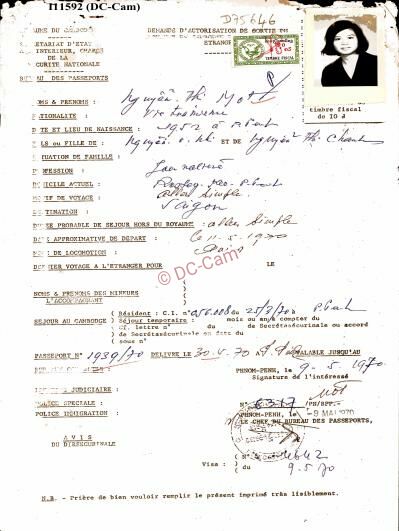 Π1592 (DC-Cam)
D75646
DEMANDE D'AUTORISATION DE SORTIE
SECRETARIAT D'ETAT
ETRANGE
SECURITE NATIONALE
BUREAU DES PASSEPORTS
TIMBRE FISCAL
timbre fiscal
de 10 ♯
NOMS & PRENOMS : Nguyễn Thị Một
NATIONALITE : Vietnamienne
DATE ET LIEU DE NAISSANCE : 1952 à P.Penh
FILS ou FILLE de : Nguyễn ET DE Nguyễn Thị Chanh
SITUATION DE FAMILLE :
PROFESSION :
DOMICILE ACTUEL :
MOTIF DE VOYAGE : aller simple
DESTINATION : Saigon
DUREE PROBABLE DE SEJOUR HORS DU ROYAUME aller simple
DATE APPROXIMATIVE DE DEPART : le 11-5-1970
MOYEN DE LOCOMOTION :
DERNIER VOYAGE A L'ETRANGER POUR LE
© DC-Cam
NOMS & PRENOMS DES MINEURS
L'ACCOMPAGNANT
( Résident : C.I. n° 056.008 du 25/3/70 P.Penh
SEJOUR AU CAMBODGE ( Séjour temporaire : mois ou an/s à compter du
( Cf. lettre n° du de Secrétairerie ou accord
( de Secrétairerie en date du
( sous n°
PASSEPORT N° 1939/70 DELIVRE LE 30.4.70 VALABLE JUSQU'AU
PHNOM-PENH, le 9-5-1970
Signature de l'intéressé
Một
JUDICIAIRE :
POLICE SPECIALE :
POLICE IMMIGRATION :
N° 6317 /PS/SPP.-
PHNOM-PENH, le - 9 MAI 1970
LE CHEF DU BUREAU DES PASSEPORTS,
A V I S
DU DIRSECURINALE
Visa : ( N° 4642
( du 9.5.70
N.B. - Prière de bien vouloir remplir le présent imprimé très lisiblement.